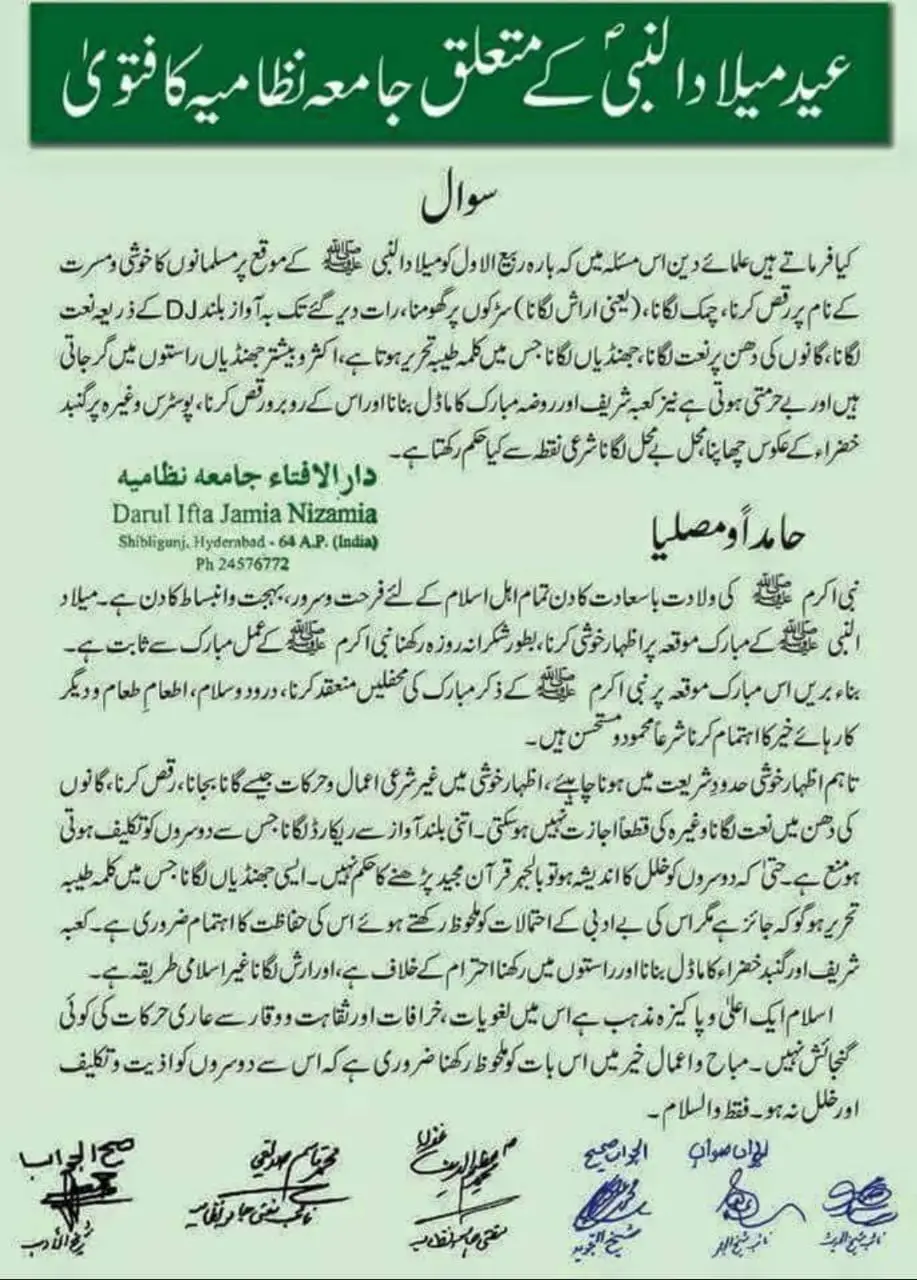 عید میلاد النبیؐ کے متعلق جامعہ نظامیہ کا فتویٰ
سوال
کیا فرماتے ہیں علمائے دین اس مسئلہ میں کہ بارہ ربیع الاول کو میلاد النبی ﷺ کے موقع پر مسلمانوں کا خوشی ومسرت
کے نام پر رقص کرنا، چمک لگانا، (یعنی اراش لگانا) سڑکوں پر گھومنا، رات دیر گئے تک بہ آواز بلند DJ کے ذریعہ نعت
لگانا، گانوں کی دھن پر نعت لگانا، جھنڈیاں لگانا جس میں کلمہ طیبہ تحریر ہوتا ہے، اکثر و بیشتر جھنڈیاں راستوں میں گر جاتی
ہیں اور بے حرمتی ہوتی ہے نیز کعبہ شریف اور روضہ مبارک کا ماڈل بنانا اور اس کے روبرو رقص کرنا، پوسٹرس وغیرہ پر گنبد
خضراء کے عکوس چھاپنا، محل بے محل لگانا شرعی نقطہ سے کیا حکم رکھتا ہے۔
دار الافتاء جامعہ نظامیہ
Darul Ifta Jamia Nizamia
Shibligunj, Hyderabad - 64 A.P. (India)
Ph 24576772
حامداً و مصلیا
نبی اکرم ﷺ کی ولادت باسعادت کا دن تمام اہل اسلام کے لئے فرحت و سرور، بہجت و انبساط کا دن ہے۔ میلاد
النبی ﷺ کے مبارک موقعہ پر اظہار خوشی کرنا، بطور شکرانہ روزہ رکھنا نبی اکرم ﷺ کے عمل مبارک سے ثابت ہے۔
بناء بریں اس مبارک موقعہ پر نبی اکرم ﷺ کے ذکر مبارک کی محفلیں منعقد کرنا، درود و سلام، اطعامِ طعام و دیگر
کارہائے خیر کا اہتمام کرنا شرعاً محمود و مستحسن ہیں۔
تاہم اظہار خوشی حدودِ شریعت میں ہونا چاہیئے، اظہار خوشی میں غیر شرعی اعمال و حرکات جیسے گانا بجانا، رقص کرنا، گانوں
کی دھن میں نعت لگانا وغیرہ کی قطعاً اجازت نہیں ہوسکتی۔ اتنی بلند آواز سے ریکارڈ لگانا جس سے دوسروں کو تکلیف ہوتی
ہو منع ہے۔ حتیٰ کہ دوسروں کو خلل کا اندیشہ ہو تو بالجہر قرآن مجید پڑھنے کا حکم نہیں۔ ایسی جھنڈیاں لگانا جس میں کلمہ طیبہ
تحریر ہو گو کہ جائز ہے مگر اس کی بے ادبی کے احتمالات کو ملحوظ رکھتے ہوئے اس کی حفاظت کا اہتمام ضروری ہے۔ کعبہ
شریف اور گنبد خضراء کا ماڈل بنانا اور راستوں میں رکھنا احترام کے خلاف ہے، اور ارش لگانا غیر اسلامی طریقہ ہے۔
اسلام ایک اعلیٰ و پاکیزہ مذہب ہے اس میں لغویات، خرافات اور ثقاہت و وقار سے عاری حرکات کی کوئی
گنجائش نہیں۔ مباح و اعمال خیر میں اس بات کو ملحوظ رکھنا ضروری ہے کہ اس سے دوسروں کو اذیت و تکلیف
اور خلل نہ ہو۔ فقط والسلام۔
الجواب صواب
الجواب صحیح
محمد قاسم صدیقی
صح الجواب
نائب شیخ الحدیث
شیخ التجوید
مفتی جامعہ نظامیہ
نائب مفتی جامعہ نظامیہ
شیخ الادب